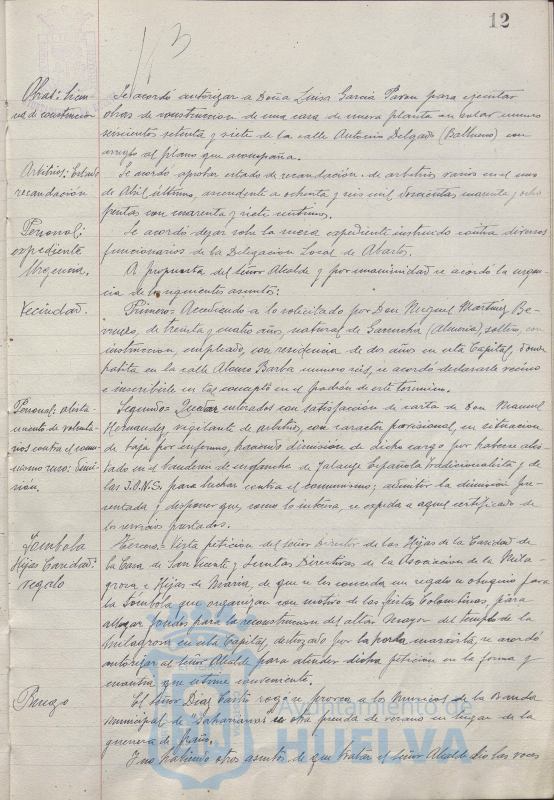 12
Obras: licen-
cia de construccion
Se acordó autorizar a Doña Luisa García Pavon para ejecutar
obras de construccion de una casa de nueva planta en solar numero
seiscientos setenta y siete de la calle Antonio Delgado (Balbueno) con
arreglo al plano que acompaña.
Arbitrios: Estado
recaudación
Se acordo aprobar estado de recaudación de arbitrios varios en el mes
de Abril último, ascendente a ochenta y seis mil doscientas cuarenta y ocho
pesetas con cuarenta y siete centimos.
Personal;
expediente
Se acordó dejar sobre la mesa expediente instruido contra diversos
funcionarios de la Delegación Local de Abastos.
Urgencia.
A propuesta del Señor Alcalde y por unanimidad se acordó la urgen-
cia de los siguientes asuntos:
Vecindad.
Primero= Accediendo a lo solicitado por Don Miguel Martinez Be-
de treinta y cuatro años, natural de Garrucha (Almeria), soltero, con
instruccion, empleado, con residencia de dos años en esta Capital, donde
habita en la calle Alonso Barba numero seis, se acordó declararle vecino
e inscribirle en tal concepto en el padrón de este termino.
Personal; alista-
miento de volunta-
rios contra el comu-
nismo ruso: Dimi-
sión.
Segundo= Quedar enterados con satisfacción de carta de Don Manuel
Hernandez, vigilante de arbitrios, con caracter provisional, en situacion
de baja por enfermo, haciendo dimisión de dicho cargo por haberse alis-
tado en el banderin de enganche de Falange Española Tradicionalista y de
las J.O.N.S. para luchar contra el comunismo; admitir la dimisión pre-
sentada y disponer que, como lo interesa, se expida a aquel certificado de
los servicios prestados.
Tombola
Hijas Caridad:
regalo
Tercero= Vista petición del señor Director de las Hijas de la Caridad de
la Casa de San Vicente y Juntas Directivas de la Asociacion de la Mila-
grosa e Hijas de Maria, de que se les conceda un regalo u obsequio para
la Tómbola que organizan con motivo de las fiestas Colombinas para
allegar fondos para la reconstruccion del altar Mayor del templo de la
Milagrosa en esta Capital, destrozado por la horda marxista, se acordó
autorizar al señor Alcalde para atender dicha petición en la forma y
cuantia que estime conveniente.
Ruego
El señor Diaz rogó se provea a los musicos de la Banda
Municipal de "Saharianas" u otra prenda de verano en lugar de la
guerrera de paño.
Y no habiendo otros asuntos de que tratar el señor Alcalde dio las voces
Ayuntamiento de
HUELVA